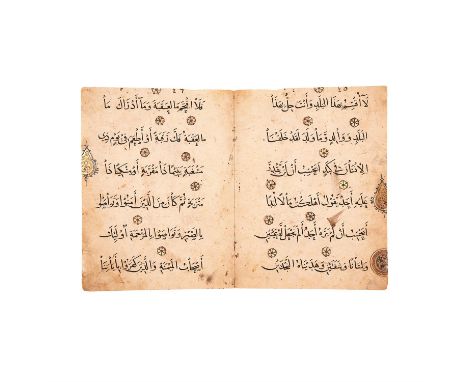 لَا أُقْسِمُ بِهَذَا الْبَلَدِ وَأَنْتَ حِلٌّ بِهَذَا
الْبَلَدِ وَوَالِدٍ وَمَا وَلَدَ لَقَدْ خَلَقْنَا
الْإِنْسَانَ فِي كَبَدٍ أَيَحْسَبُ أَنْ لَنْ يَقْدِرَ
عَلَيْهِ أَحَدٌ يَقُولُ أَهْلَكْتُ مَالًا لُبَدًا
أَيَحْسَبُ أَنْ لَمْ يَرَهُ أَحَدٌ أَلَمْ نَجْعَلْ لَهُ عَيْنَيْنِ
وَلِسَانًا وَشَفَتَيْنِ وَهَدَيْنَاهُ النَّجْدَيْنِ
فَلَا اقْتَحَمَ الْعَقَبَةَ وَمَا أَدْرَاكَ مَا
الْعَقَبَةُ فَكُّ رَقَبَةٍ أَوْ إِطْعَامٌ فِي يَوْمٍ ذِي
مَسْغَبَةٍ يَتِيمًا ذَا مَقْرَبَةٍ أَوْ مِسْكِينًا ذَا
مَتْرَبَةٍ ثُمَّ كَانَ مِنَ الَّذِينَ آمَنُوا وَتَوَاصَوْا
بِالصَّبْرِ وَتَوَاصَوْا بِالْمَرْحَمَةِ أُولَئِكَ
أَصْحَابُ الْمَيْمَنَةِ وَالَّذِينَ كَفَرُوا بِآيَاتِنَا